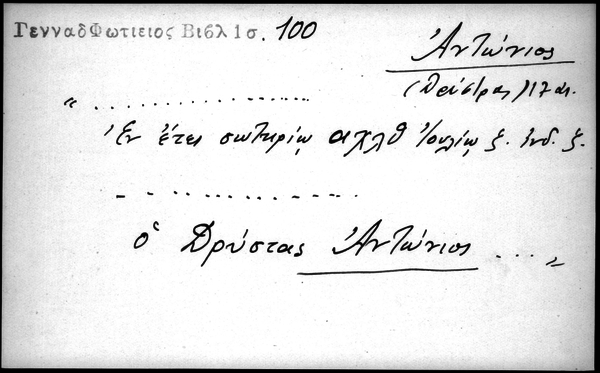 ΓενναδΦωτιειος Βιβλ 1 σ. 100
Ἀντώνιος
(Δρύστρας) 17 αι.
" . . . . . . . . . . . . . . .
Ἐν ἔτει σωτηρίῳ αχλθ Ἰουλίῳ ξ. ἰνδ. ξ.
- - . . . . . . . . . . . .
ὁ Δρύστας Ἀντώνιος . . . "